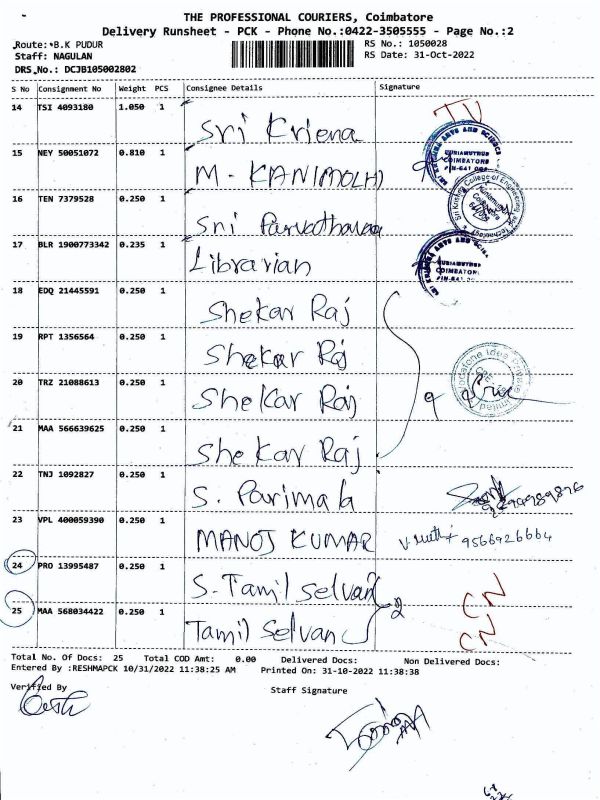 THE PROFESSIONAL COURIERS, Coimbatore
Delivery Runsheet - PCK - Phone No.:0422-3505555 - Page No.:2
Route: B.K PUDUR RS No.: 1050028
Staff: NAGULAN RS Date: 31-Oct-2022
DRS No.: DCJB105002802
S No Consignment No Weight PCS Consignee Details Signature
14 TSI 4093180 1.050 1 Sri Krisna TV
15 NEY 50051072 0.810 1 M- KANIMOLHI
16 TEN 7379528 0.250 1 Sri
17 BLR 1900773342 0.235 1 Librarian
18 EDQ 21445591 0.250 1 Shekar Raj
19 RPT 1356564 0.250 1 Shekar Raj
20 TRZ 21088613 0.250 1 Shekar Raj
21 MAA 566639625 0.250 1 Shekar Raj
22 TNJ 1092827 0.250 1 S. Parimala
23 VPL 400059390 0.250 1 MANOJ KUMAR 9566926664
24 PRO 13995487 0.250 1 S. Tamil Selvan CN
25 MAA 568034422 0.250 1 Tamil Selvan 2 CN
Total No. Of Docs: 25 Total COD Amt: 0.00 Delivered Docs: Non Delivered Docs:
Entered By :RESHMAPCK 10/31/2022 11:38:25 AM Printed On: 31-10-2022 11:38:38
Verified By Staff Signature